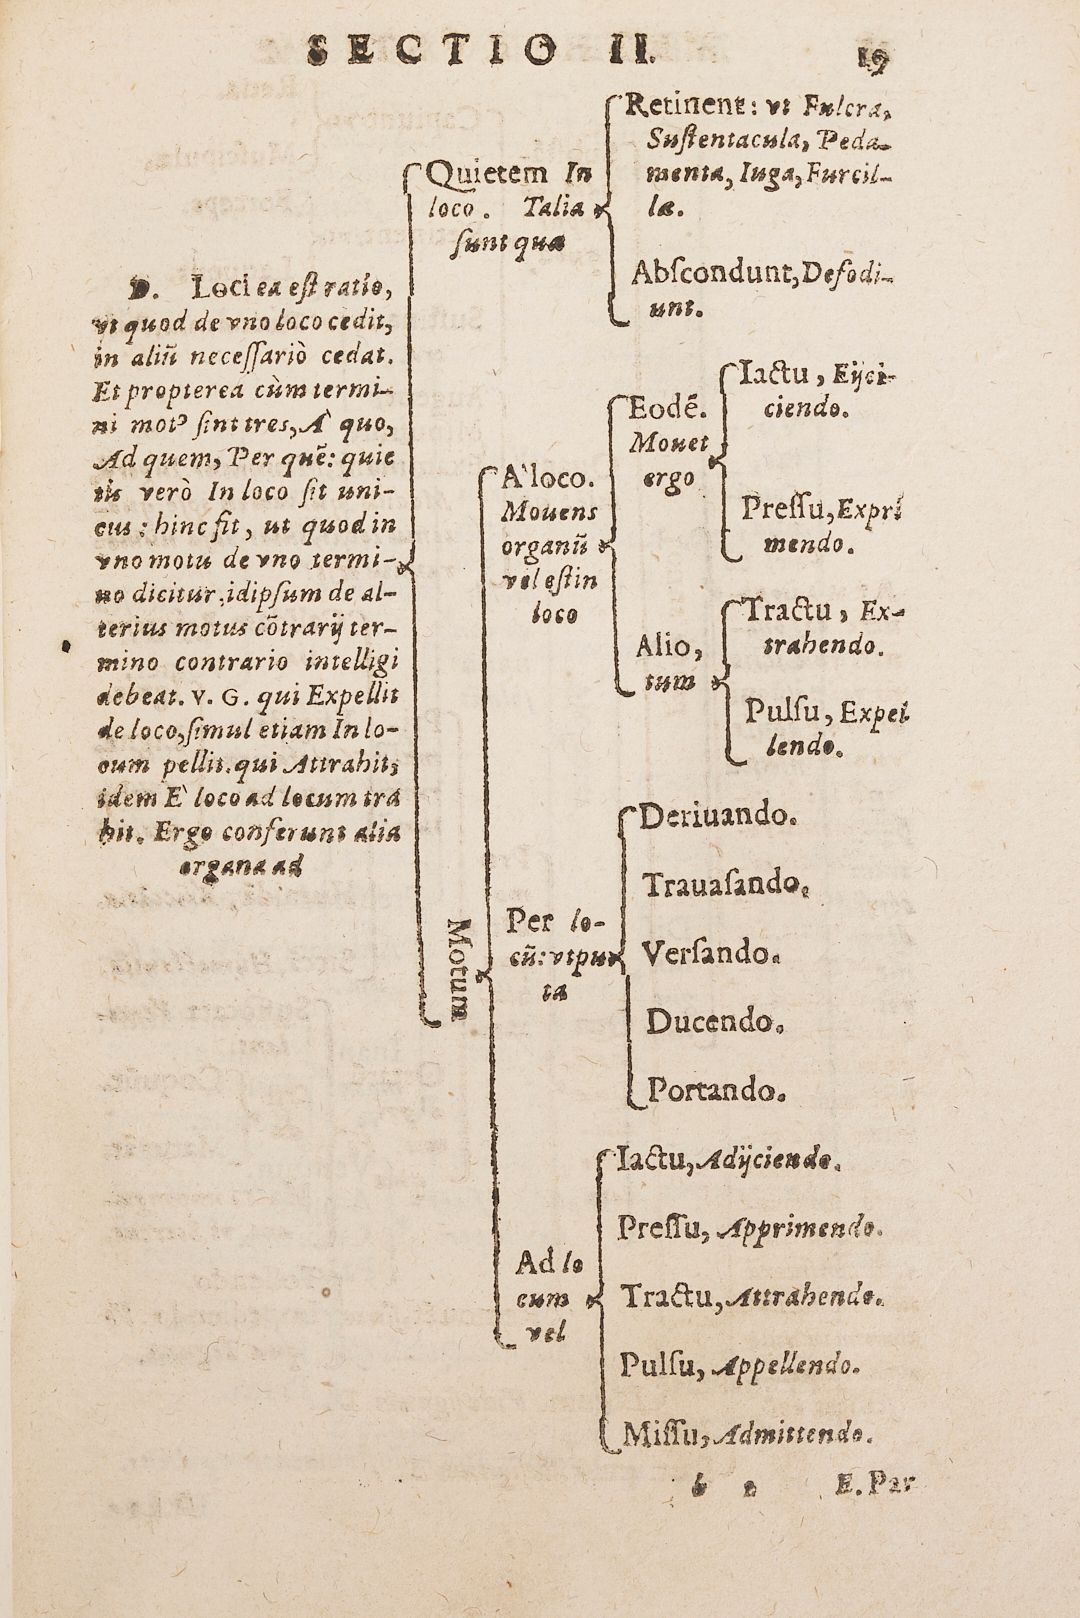 SECTIO II. 19
D. Loci ea est ratio,
vt quod de vno loco cedit,
in aliũ necessariò cedat.
Et propterea cùm termi-
ni motꝰ sint tres, A` quo,
Ad quem, Per quẽ: quie
tis verò In loco sit uni-
cus: hinc fit, ut quod in
vno motu de vno termi-
no dicitur, idipsum de al-
terius motus cõtrarij ter-
mino contrario intelligi
debeat. V. G. qui Expellit
de loco, simul etiam In lo-
cum pellit. qui Attrahit,
idem E` loco ad locum tra
hit. Ergo conferunt alia
organa ad
Quietem In
loco. Talia
sunt quæ
Retinent: vt Fulcra,
Sustentacula, Peda-
menta, Iuga, Furcil-
læ.
Abscondunt, Defodi-
unt.
Motum
A` loco.
Mouens
organũ
vel est in
loco
Eodẽ.
Mouet
ergo
Iactu, Eijci-
ciendo.
Pressu, Expri
mendo.
Alio,
tum
Tractu, Ex-
trahendo.
Pulsu, Expel
lendo.
Per lo-
cũ: vtpu
ta
Deriuando.
Trauasando.
Versando.
Ducendo.
Portando.
Ad lo
cum
vel
Iactu, Adijciendo.
Pressu, Apprimendo.
Tractu, Attrahendo.
Pulsu, Appellendo.
Missu, Admittendo.
b 2 E. Par